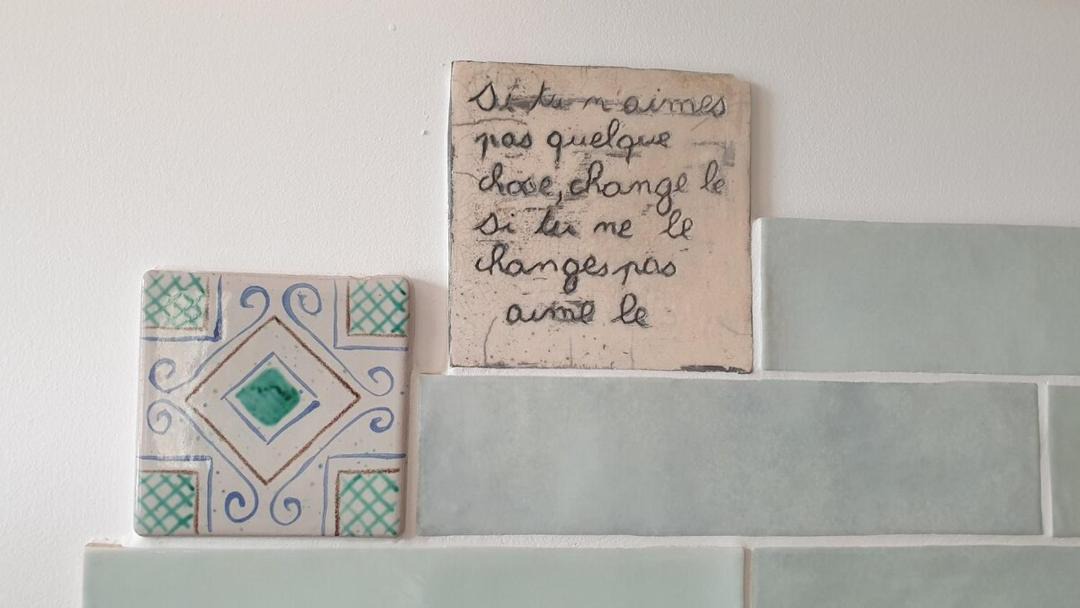 Si tu n aimes
pas quelque
chose, change le
si tu ne le
changes pas
aime le